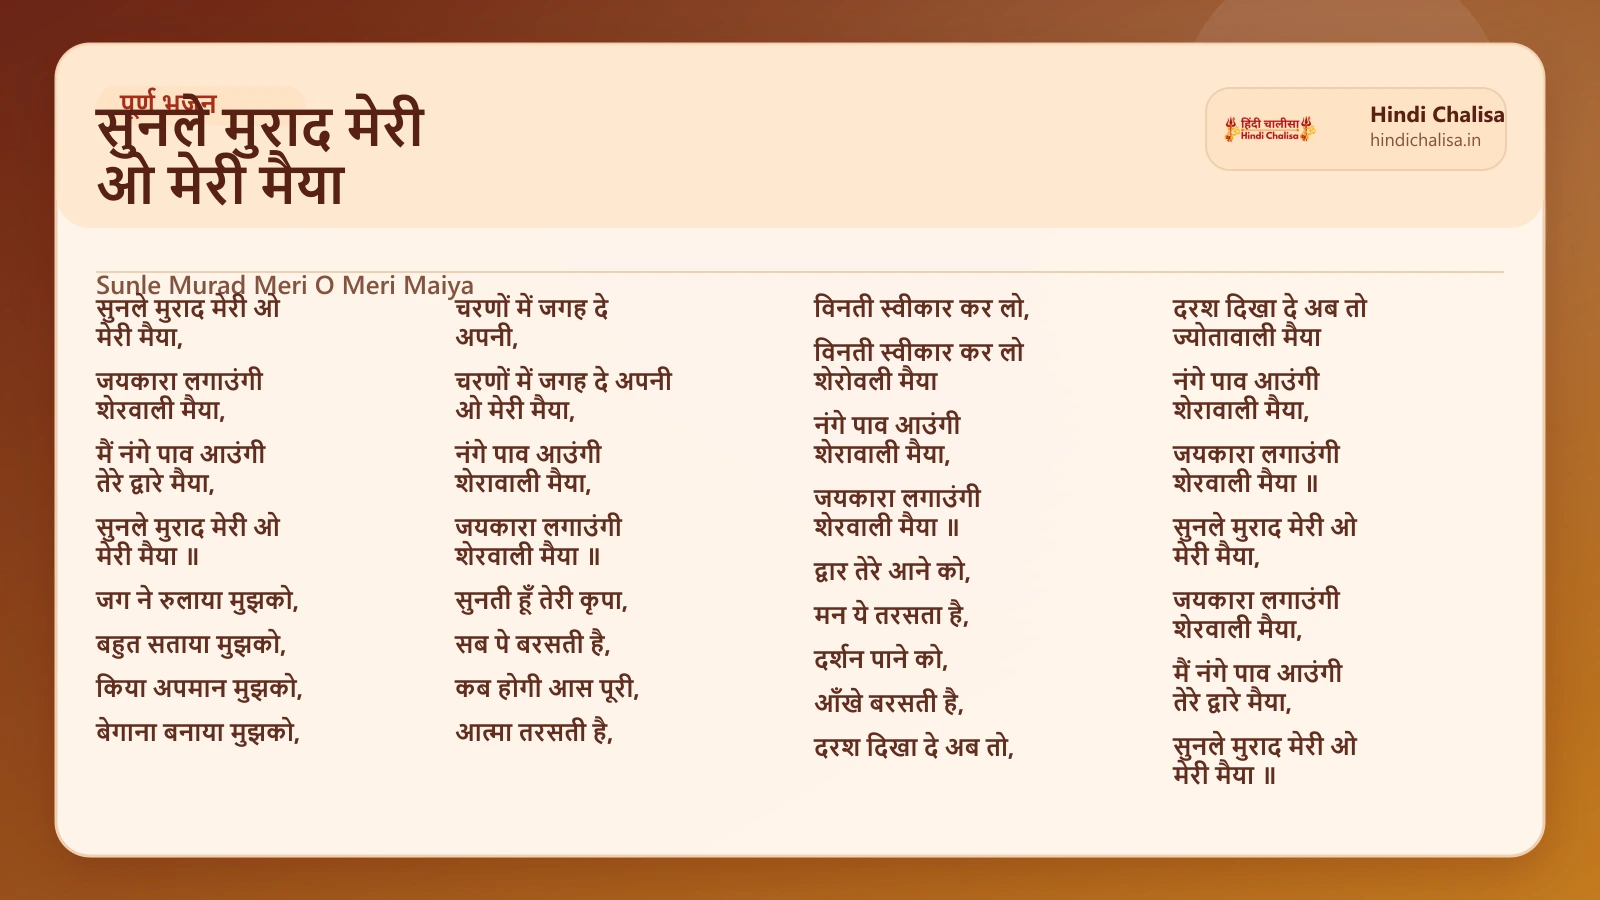 पूर्ण भजन
सुनले मुराद मेरी
ओ मेरी मैया
हिंदी चालीसा
Hindi Chalisa
Hindi Chalisa
hindichalisa.in
Sunle Murad Meri O Meri Maiya
सुनले मुराद मेरी ओ
मेरी मैया,
जयकारा लगाउंगी
शेरवाली मैया,
मैं नंगे पाव आउंगी
तेरे द्वारे मैया,
सुनले मुराद मेरी ओ
मेरी मैया ॥
जग ने रुलाया मुझको,
बहुत सताया मुझको,
किया अपमान मुझको,
बेगाना बनाया मुझको,
चरणों में जगह दे
अपनी,
चरणों में जगह दे अपनी
ओ मेरी मैया,
नंगे पाव आउंगी
शेरावाली मैया,
जयकारा लगाउंगी
शेरवाली मैया ॥
सुनती हूँ तेरी कृपा,
सब पे बरसती है,
कब होगी आस पूरी,
आत्मा तरसती है,
विनती स्वीकार कर लो,
विनती स्वीकार कर लो
शेरोवली मैया
नंगे पाव आउंगी
शेरावाली मैया,
जयकारा लगाउंगी
शेरवाली मैया ॥
द्वार तेरे आने को,
मन ये तरसता है,
दर्शन पाने को,
आँखे बरसती है,
दरश दिखा दे अब तो,
दरश दिखा दे अब तो
ज्योतावाली मैया
नंगे पाव आउंगी
शेरावाली मैया,
जयकारा लगाउंगी
शेरवाली मैया ॥
सुनले मुराद मेरी ओ
मेरी मैया,
जयकारा लगाउंगी
शेरवाली मैया,
मैं नंगे पाव आउंगी
तेरे द्वारे मैया,
सुनले मुराद मेरी ओ
मेरी मैया ॥